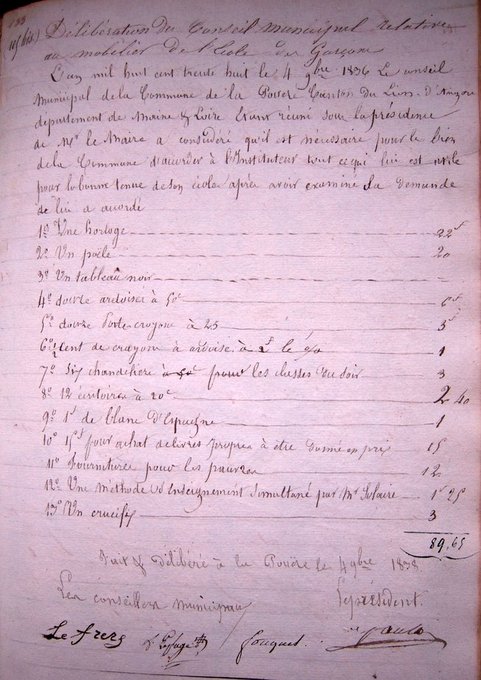 133
(bis) Délibération du Conseil municipal relative
au mobilier de l'Ecole des Garçons
L'an mil huit cent trente huit le 4 9bre 1836 Le conseil
Municipal de la Commune de la Pouëze Canton du Lion-d'Angers
département de Maine & Loire Etant réuni sous la présidence
de Mr le Maire a considéré qu'il est nécessaire pour le bien
de la Commune d'accorder à l'Instituteur tout ce qui lui est utile
pour la bonne tenue de son école après avoir examiné sa demande
de lui a accordé
1º Une horloge 22f
2º Un poêle 20
3º Un tableau noir -
4º douze ardoises à 50c 6f
5º douze porte-crayons à 25 3f
6º cent de crayons à ardoise à 1f le % 1
7º Six chandeliers à 50c pour les classes du soir 3
8º 12 écritoires à 20c 2 40
9º 1f de blanc d'Espagne 1
10º 15f pour achat de livres propres à être donnés en prix 15
11º fournitures pour les pauvres 12
12º Une méthode d'enseignement simultané par Mr 1f 25
13º Un crucifix 3
89,65
Fait & Délibéré à la Pouëze le 4 9bre 1838
Les conseillers municipaux Le président
Le frers Fouquet